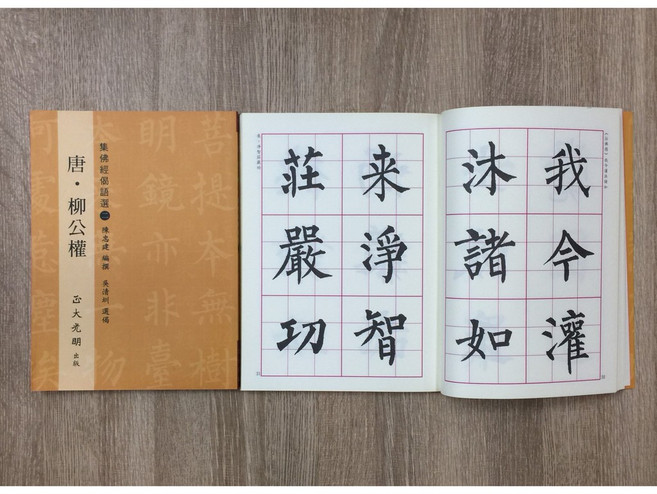 集佛經偈語選二
陳忠建 編撰
唐・柳公權
正大光明 出版
菩提本無樹
明鏡亦非臺
我今灌
沐諸如
来淨智
莊嚴功